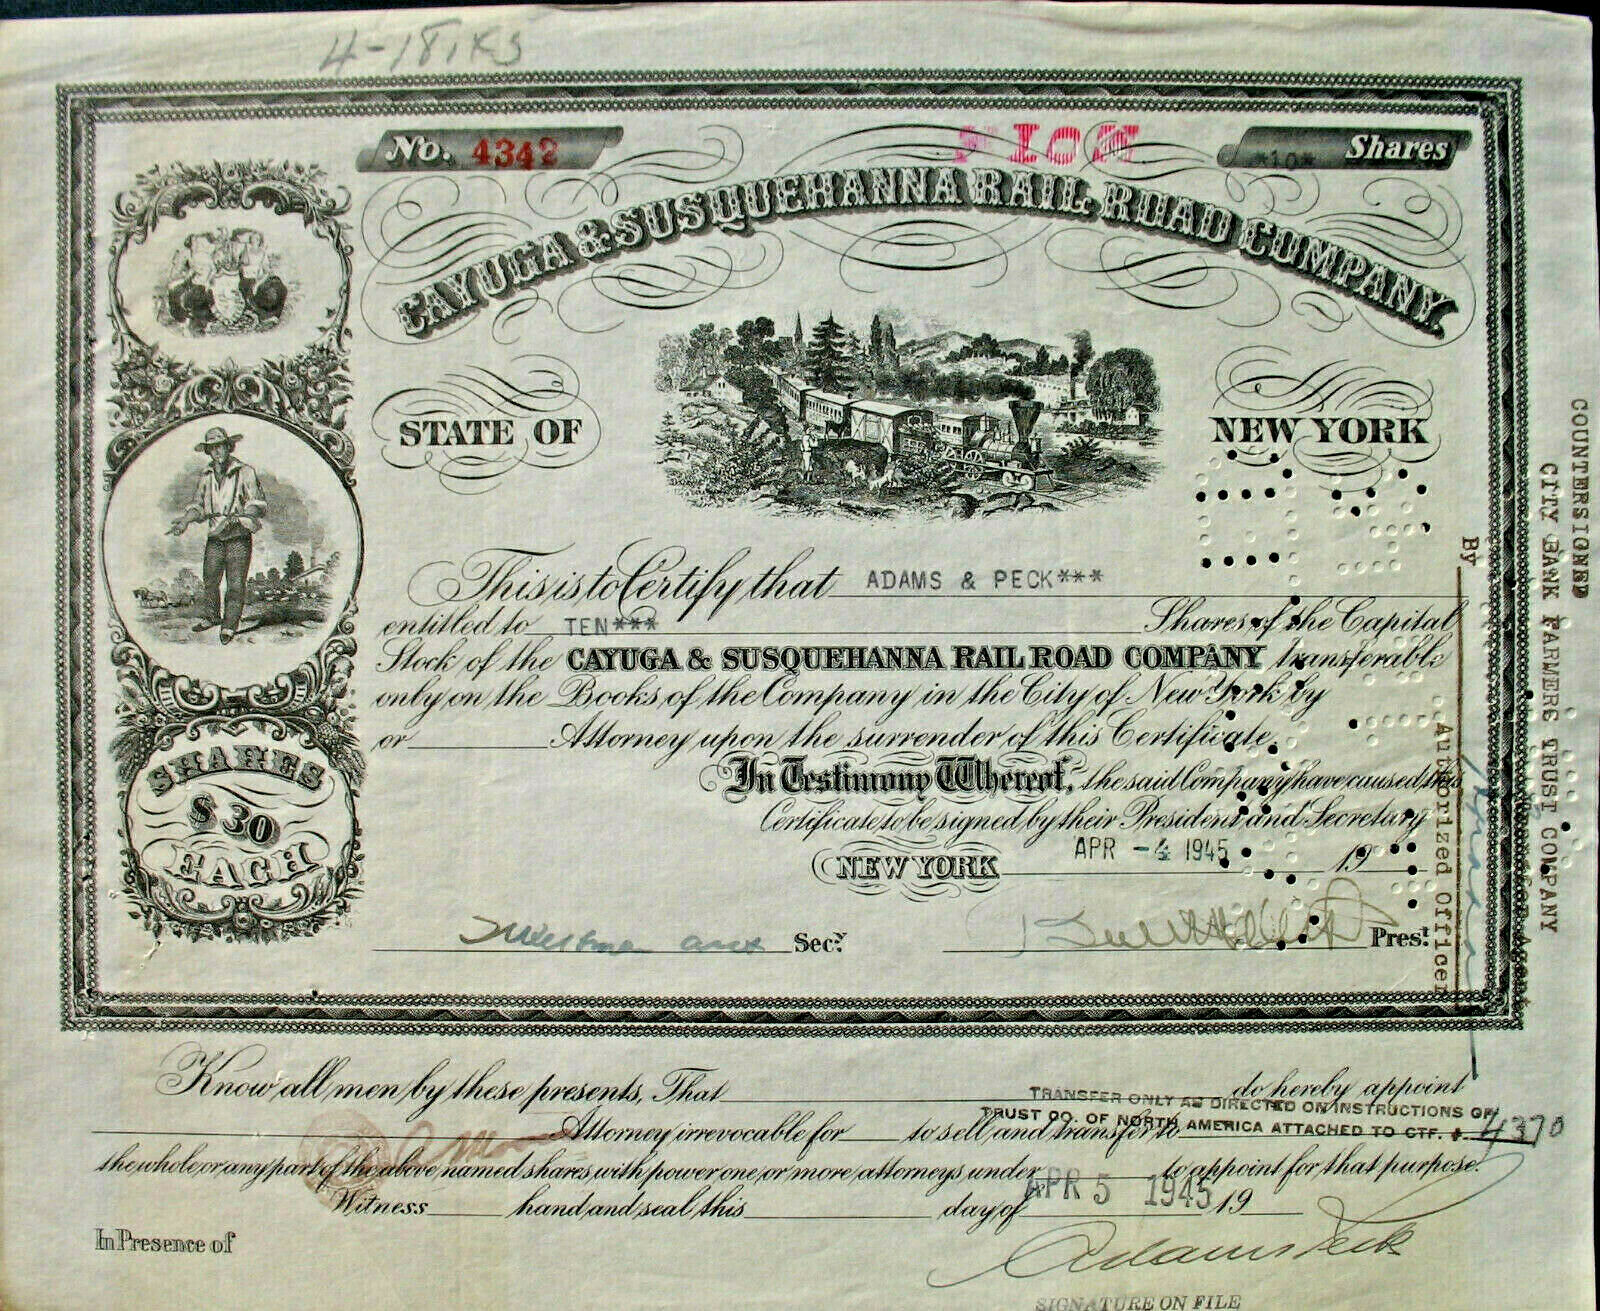 4-18
No. 4342
10
*10* Shares
CAYUGA & SUSQUEHANNA RAIL ROAD COMPANY.
STATE OF NEW YORK
This is to Certify that ADAMS & PECK***
entitled to TEN*** Shares of the Capital
Stock of the CAYUGA & SUSQUEHANNA RAIL ROAD COMPANY transferable
only on the Books of the Company in the City of New York by
or Attorney upon the surrender of this Certificate.
In Testimony Whereof, the said Company have caused this
Certificate to be signed by their President and Secretary
NEW YORK APR -4 1945 19
Secy. Prest.
SHARES
$30
EACH
COUNTERSIGNED
CITY BANK FARMERS TRUST COMPANY
By
Authorized Officer
Know all men by these presents, That do hereby appoint
TRANSFER ONLY AS DIRECTED ON INSTRUCTIONS OF
TRUST CO. OF NORTH AMERICA ATTACHED TO CTF. # 4370
Attorney irrevocable for to sell and transfer to
the whole or any part of the above named shares with power one or more attorneys under to appoint for that purpose.
APR 5 1945
Witness hand and seal this day of 19
In Presence of
Adams & Peck
SIGNATURE ON FILE